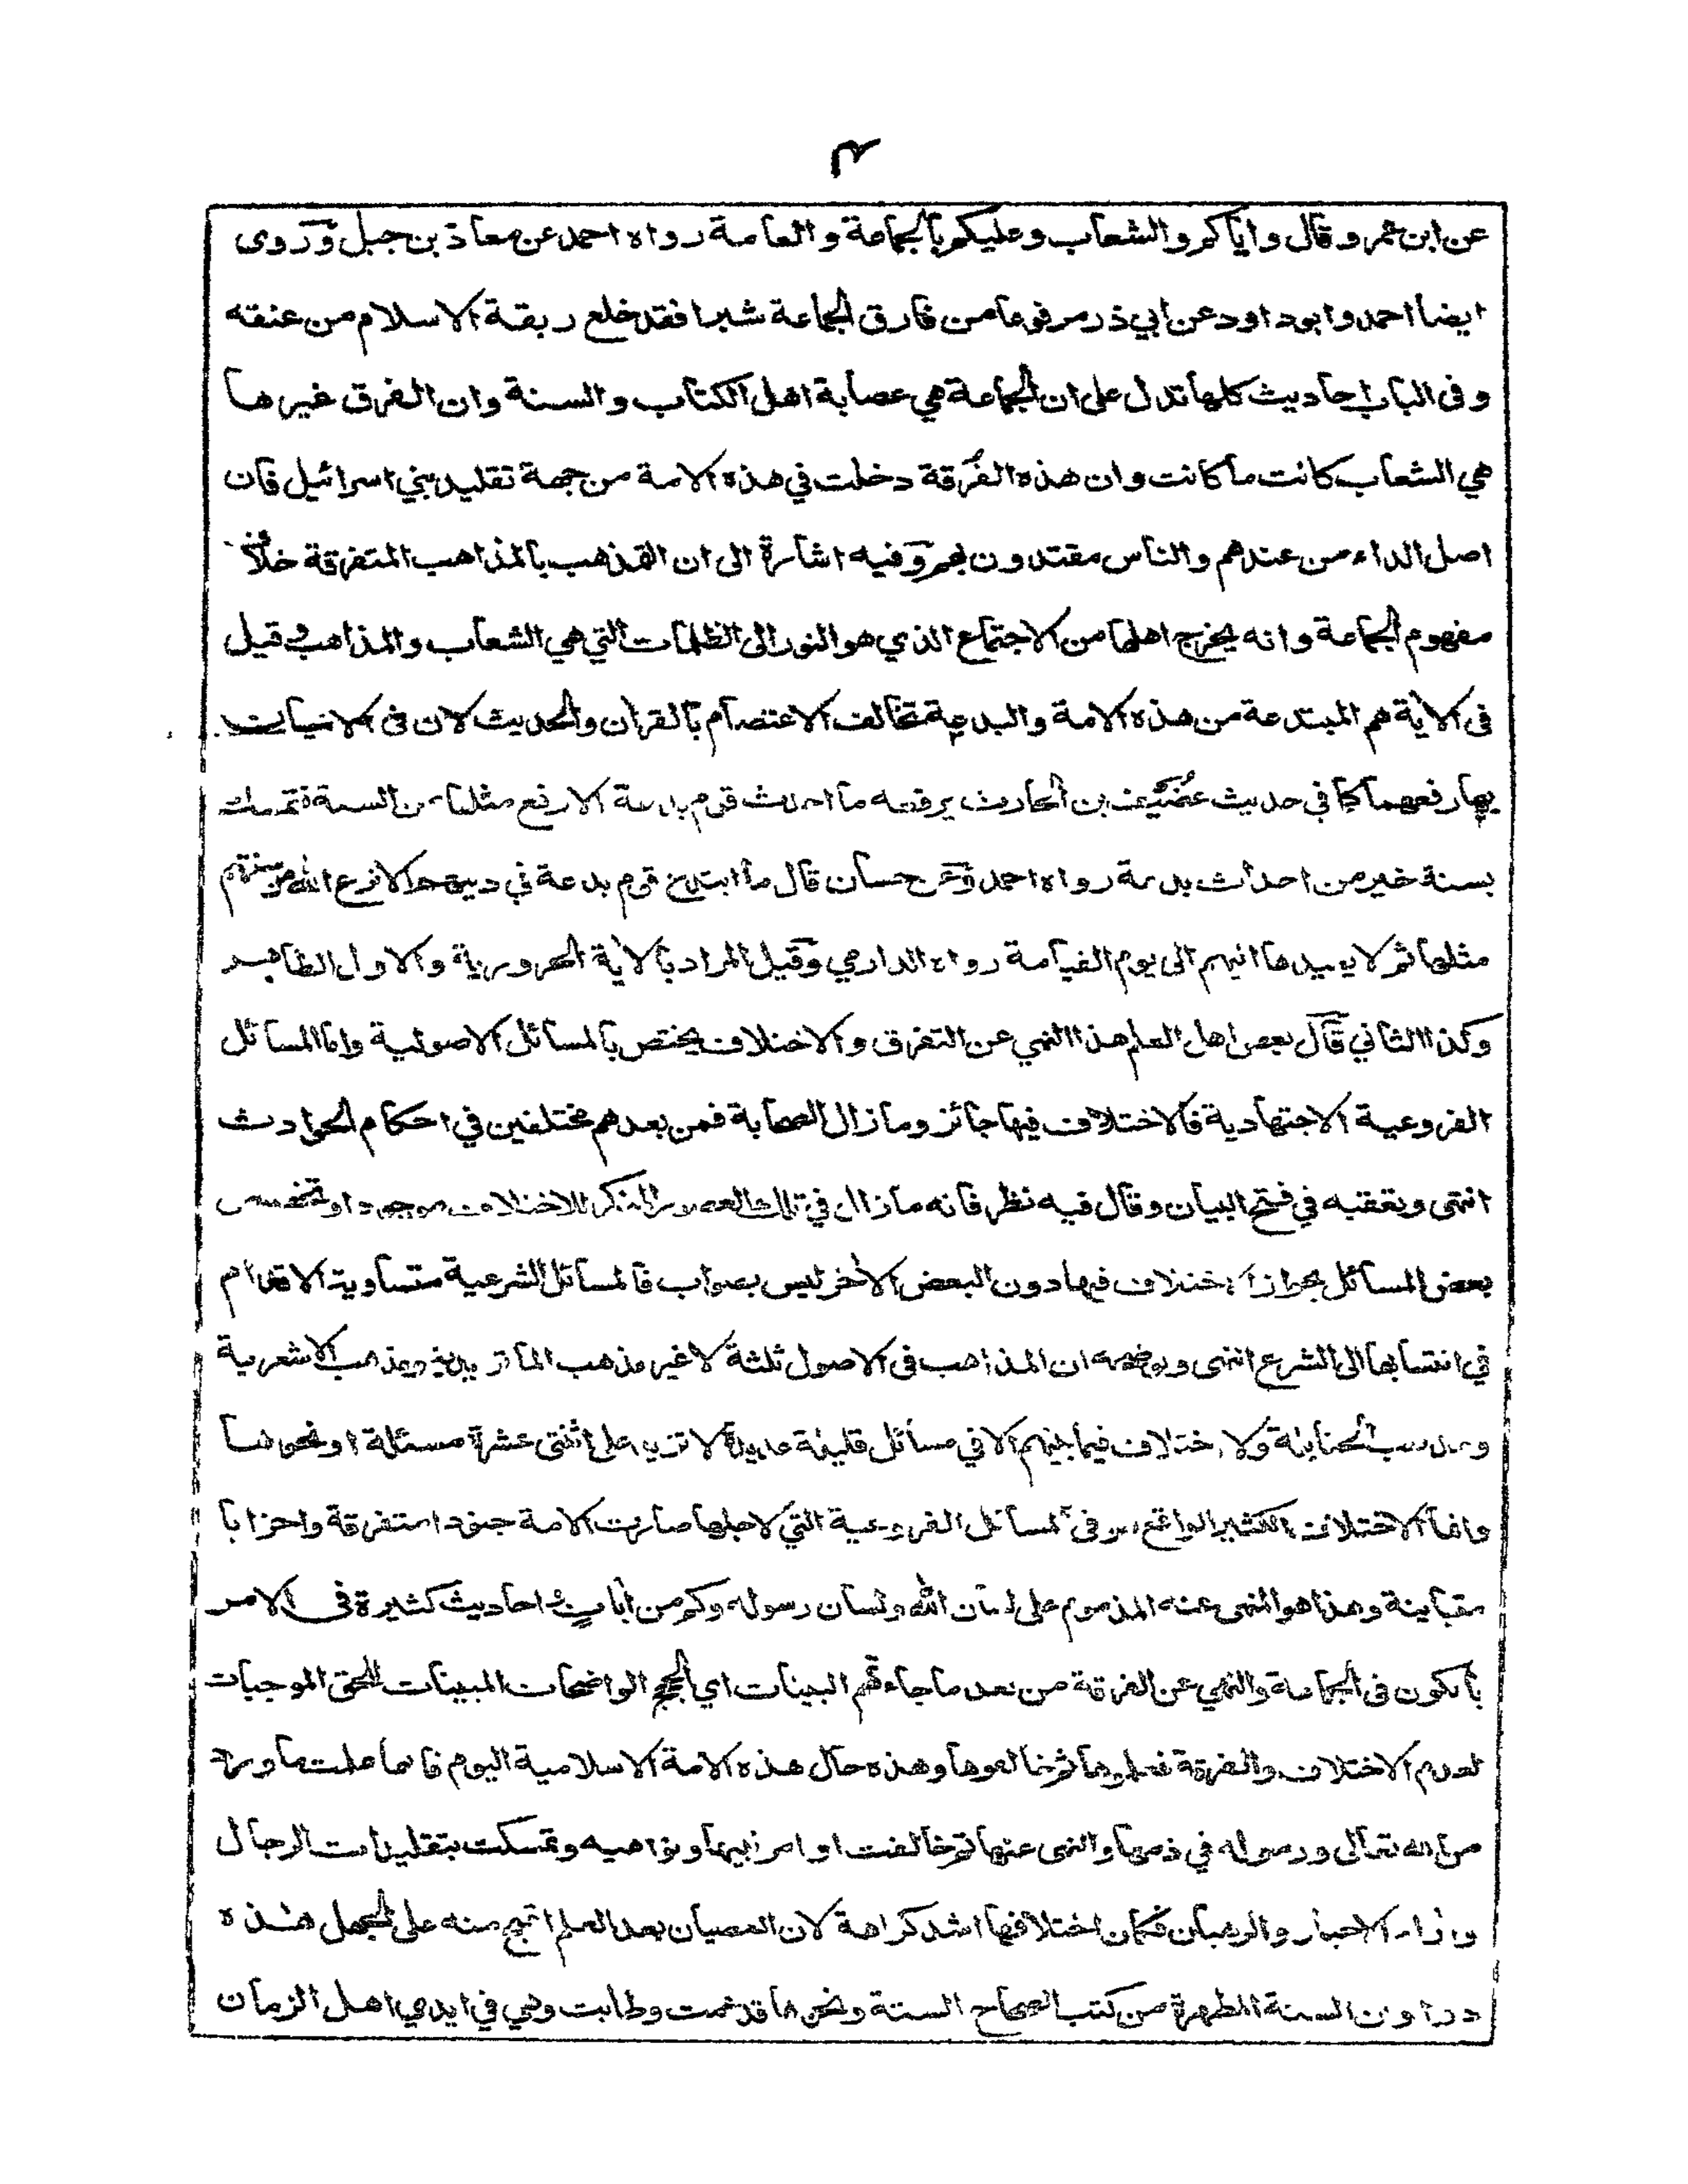 ٤
عن ابن عمر وقال واياكم والشعاب وعليكم بالجماعة والعامة رواه احمد عن معاذ بن جبل وروى
ايضا احمد وابو داود عن ابي ذر مرفوعا من فارق الجماعة شبرا فقد خلع ربقة الاسلام من عنقه
وفى الباب احاديث كلها تدل على ان الجماعة هي عصابة اهل الكتاب والسنة وان الفرق غيرها
هي الشعاب كانت ما كانت وان هذه الفرقة دخلت في هذه الامة من جهة تقليد بني اسرائيل فان
اصل الداء من عندهم والناس مقتدون بهم وفيه اشارة الى ان التمذهب بالمذاهب المتفرقة خلاف
مفهوم الجماعة وانه يخرج اهلها من الاجتماع الذي هو النور الى الظلمات التي هي الشعاب والمذاهب وقيل
فى الاية هم المبتدعة من هذه الامة والبدعة تخالف الاعتصام بالقران والحديث لان فى الاتيان
بها رفعهما كما في حديث غضيف بن الحارث يرفعه ما احدث قوم بدعة الا رفع مثلها من السنة فتمسك
بسنة خير من احداث بدعة رواه احمد وعن حسان قال ما ابتدع قوم بدعة في دينهم الا نزع الله من سنتهم
مثلها ثم لا يعيدها اليهم الى يوم القيامة رواه الدارمي وقيل المراد بالاية الحرورية والاول الظاهر
وكذا الثاني قال بعض اهل العلم هذا النهي عن التفرق والاختلاف يختص بالمسائل الاصولية واما المسائل
الفروعية الاجتهادية فالاختلاف فيها جائز وما زال الصحابة فمن بعدهم مختلفين في احكام الحوادث
انتهى وتعقبه في فتح البيان وقال فيه نظر فانه ما زال في تلك العصور المنكر للاختلاف موجودا وتخصيص
بعض المسائل بجواز الاختلاف فيها دون البعض الاخر ليس بصواب فالمسائل الشرعية متساوية الاقدام
في انتسابها الى الشرع انتهى ويوضحه ان المذاهب فى الاصول ثلثة لا غير مذهب الماتريدية ومذهب الاشعرية
ومذهب الحنابلة ولا اختلاف فيما بينهم الا في مسائل قليلة عديدة لا تزيد على اثنتى عشرة مسئلة او نحوها
وانما الاختلاف الكثير الواقع فى المسائل الفروعية التي لاجلها صارت الامة جنودا متفرقة واحزابا
متباينة وهذا هو المنهى عنه المذموم على لسان الله ولسان رسوله وكم من ايات واحاديث كثيرة فى الامر
بالكون فى الجماعة والنهي عن الفرقة من بعد ما جاءتهم البينات اي الحجج الواضحات المبينات للحق الموجبات
لعدم الاختلاف والفرقة فعلموها ثم خالفوها وهذه حال هذه الامة الاسلامية اليوم فانها علمت ما ورد
من الله تعالى ورسوله في ذمها والنهى عنها ثم خالفت اوامر نبيها ونواهيه وتمسكت بتقليدات الرجال
واراء الاحبار والرهبان فكان اختلافها اشد كراهة لان العصيان بعد العلم اقبح منه على الجهل هذه
دواوين السنة المطهرة من كتب الصحاح الستة ونحوها قد عمت وطابت وهي في ايدي اهل الزمان